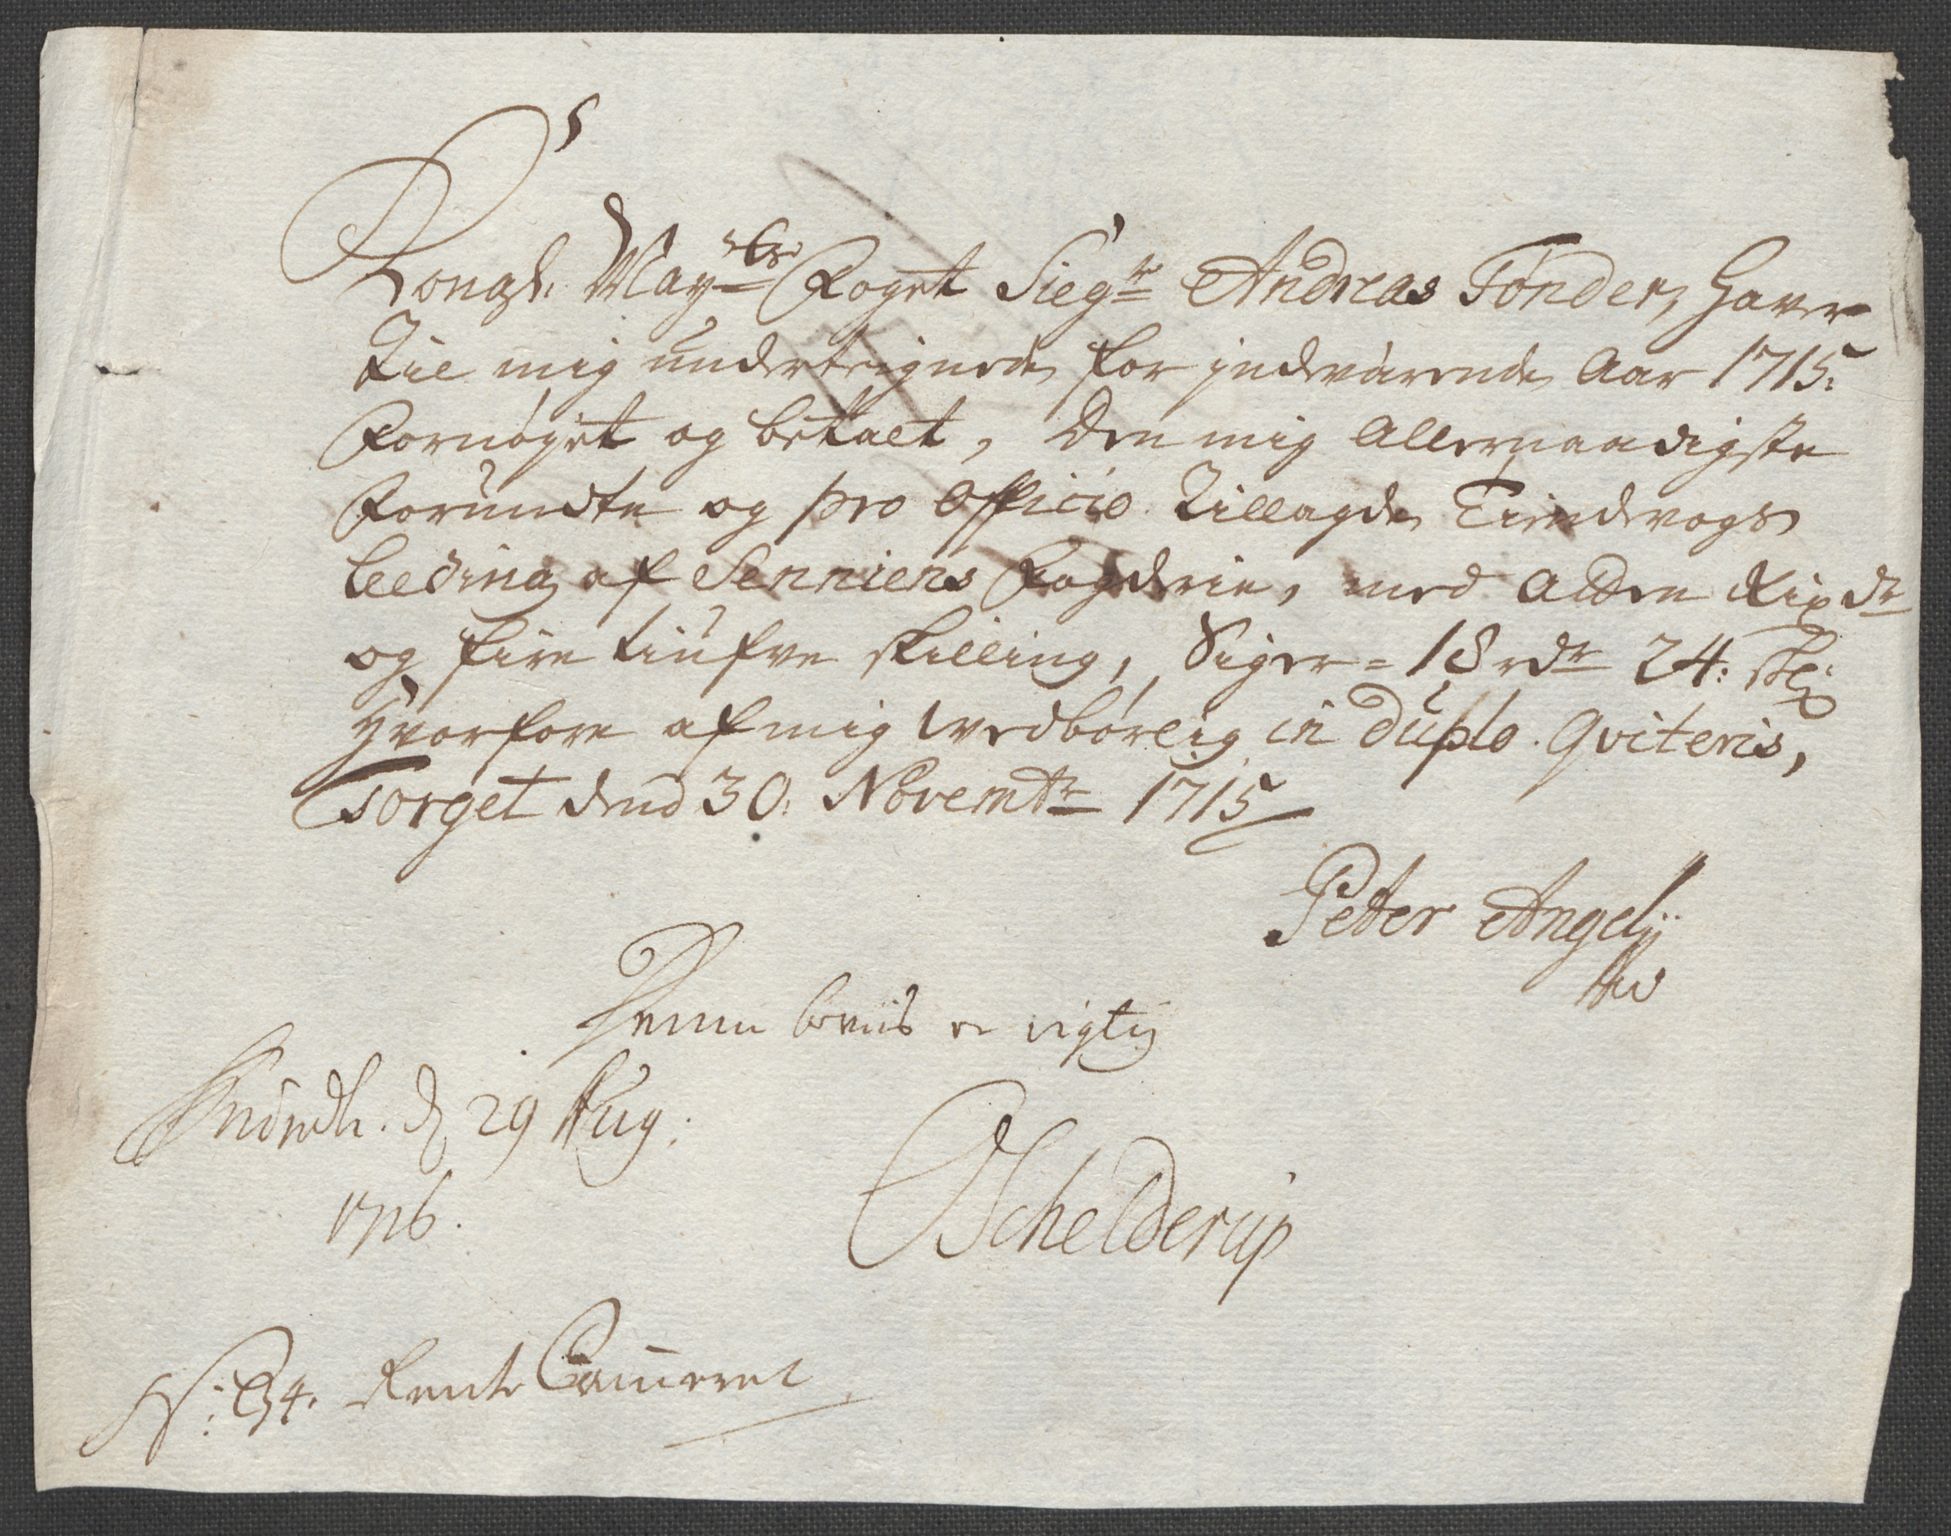 Kongl: May:ts Foget Sieg:r Andreas Tønder, Haver
Til mig underteignede for indeværende Aar 1715.
Fornøyet og betalt, Den mig Allernaadigste
Forundte og pro Officio Tillagde
Leeding af Senniens Fogderie, med Atten Rixdr
og fire tiufve skilling, Siger = 18 rdr 24: sk:
Hvorfore af mig Wedbørlig in duplo Qviteris,
Torget dend 30. Novembr 1715
Peter Angell
Denne beviis er rigtig
Trondh. d 29 Aug:
1716.
Schelderup
N: 34. Rente Cammeret